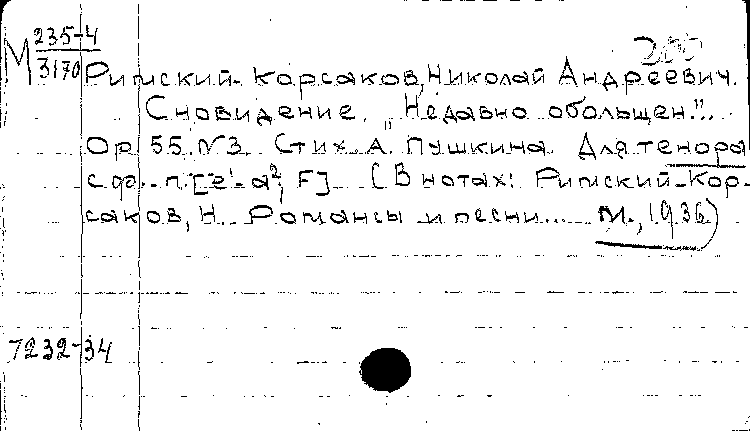 М 235-4
3170
200
Римский-Корсаков, Николай Андреевич.
Сновидение. „Недавно обольщен..."
Op. 55. №3. Стих. А. Пушкина. Для тенора
с ф.-п. [e¹-a², F] (В нотах: Римский-Кор-
саков, Н. Романсы и песни... М., 1936)
7232-34